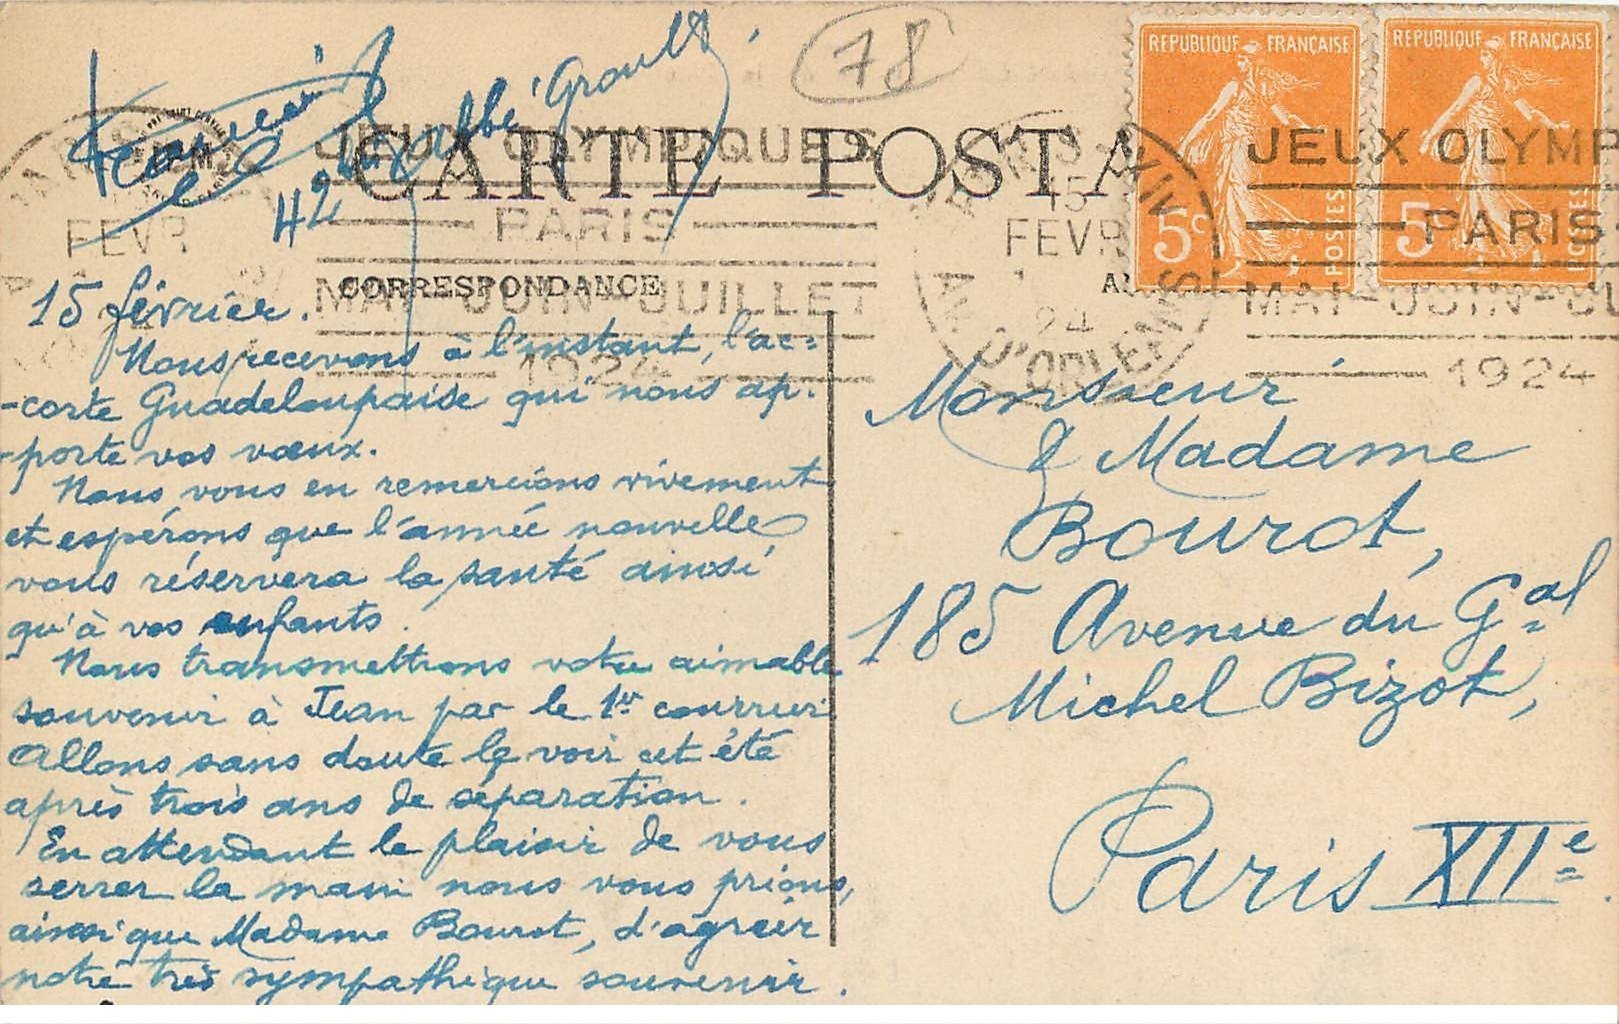 78
REPUBLIQUE FRANÇAISE
5c
POSTES
REPUBLIQUE FRANÇAISE
5
POSTES
42 r. abbé Groult
CARTE POSTA
JEUX OLYMPIQUES
PARIS
MAI-JUIN-JUILLET
1924
FEVR
PARIS XIV
15
FEVR
24
AV. D'ORLEANS
JEUX OLYMP
PARIS
MAI-JUIN-JU
1924
CORRESPONDANCE
15 février.
Nous recevons à l'instant, l'ac-
-corte Guadeloupaise qui nous ap-
-porte vos vœux.
Nous vous en remercions vivement
et espérons que l'année nouvelle
vous réservera la santé ainsi
qu'à vos enfants.
Nous transmettrons votre aimable
souvenir à Jean par le 1er courrier
Allons sans doute le voir cet été
après trois ans de séparation.
En attendant le plaisir de vous
serrer la main nous vous prions,
ainsi que Madame Bourot, d'agréer
notre très sympathique souvenir.
Monsieur
& Madame
Bourot,
185 Avenue du Gal
Michel Bizot,
Paris XIIe.